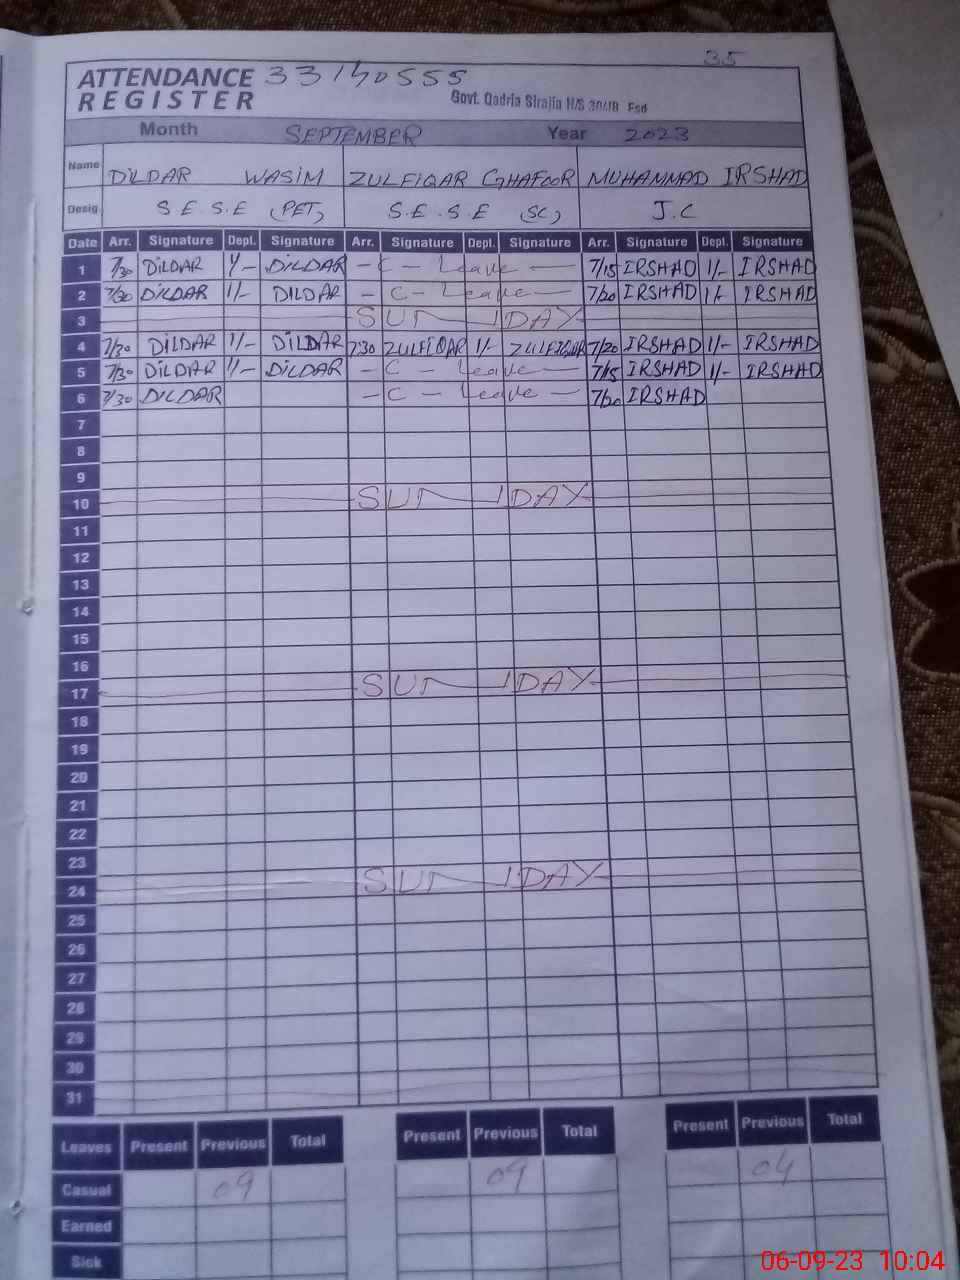 35
ATTENDANCE 33140555
REGISTER Govt. Qadria Sirajia H/S 30/JB Fsd
Month SEPTEMBER Year 2023
Name DILDAR WASIM ZULFIQAR GHAFOOR MUHAMMAD IRSHAD
Desig. S.E.S.E (PET) S.E.S.E (SC) J.C
Date Arr. Signature Dept. Signature Arr. Signature Dept. Signature Arr. Signature Dept. Signature
1 7/30 DILDAR 1/- DILDAR - C - Leave - 7/15 IRSHAD 1/- IRSHAD
2 7/30 DILDAR 1/- DILDAR - C - Leave - 7/20 IRSHAD 1/- IRSHAD
3 SUNDAY
4 7/30 DILDAR 1/- DILDAR 7:30 ZULFIQAR 1/- ZULFIQAR 7/20 IRSHAD 1/- IRSHAD
5 7/30 DILDAR 1/- DILDAR - C - Leave - 7/15 IRSHAD 1/- IRSHAD
6 7/30 DILDAR - C - Leave - 7/20 IRSHAD
7
8
9
10 SUNDAY
11
12
13
14
15
16
17 SUNDAY
18
19
20
21
22
23
24 SUNDAY
25
26
27
28
29
30
31
Leaves Present Previous Total Present Previous Total Present Previous Total
Casual 09 09 04
Earned
Sick
06-09-23 10:04